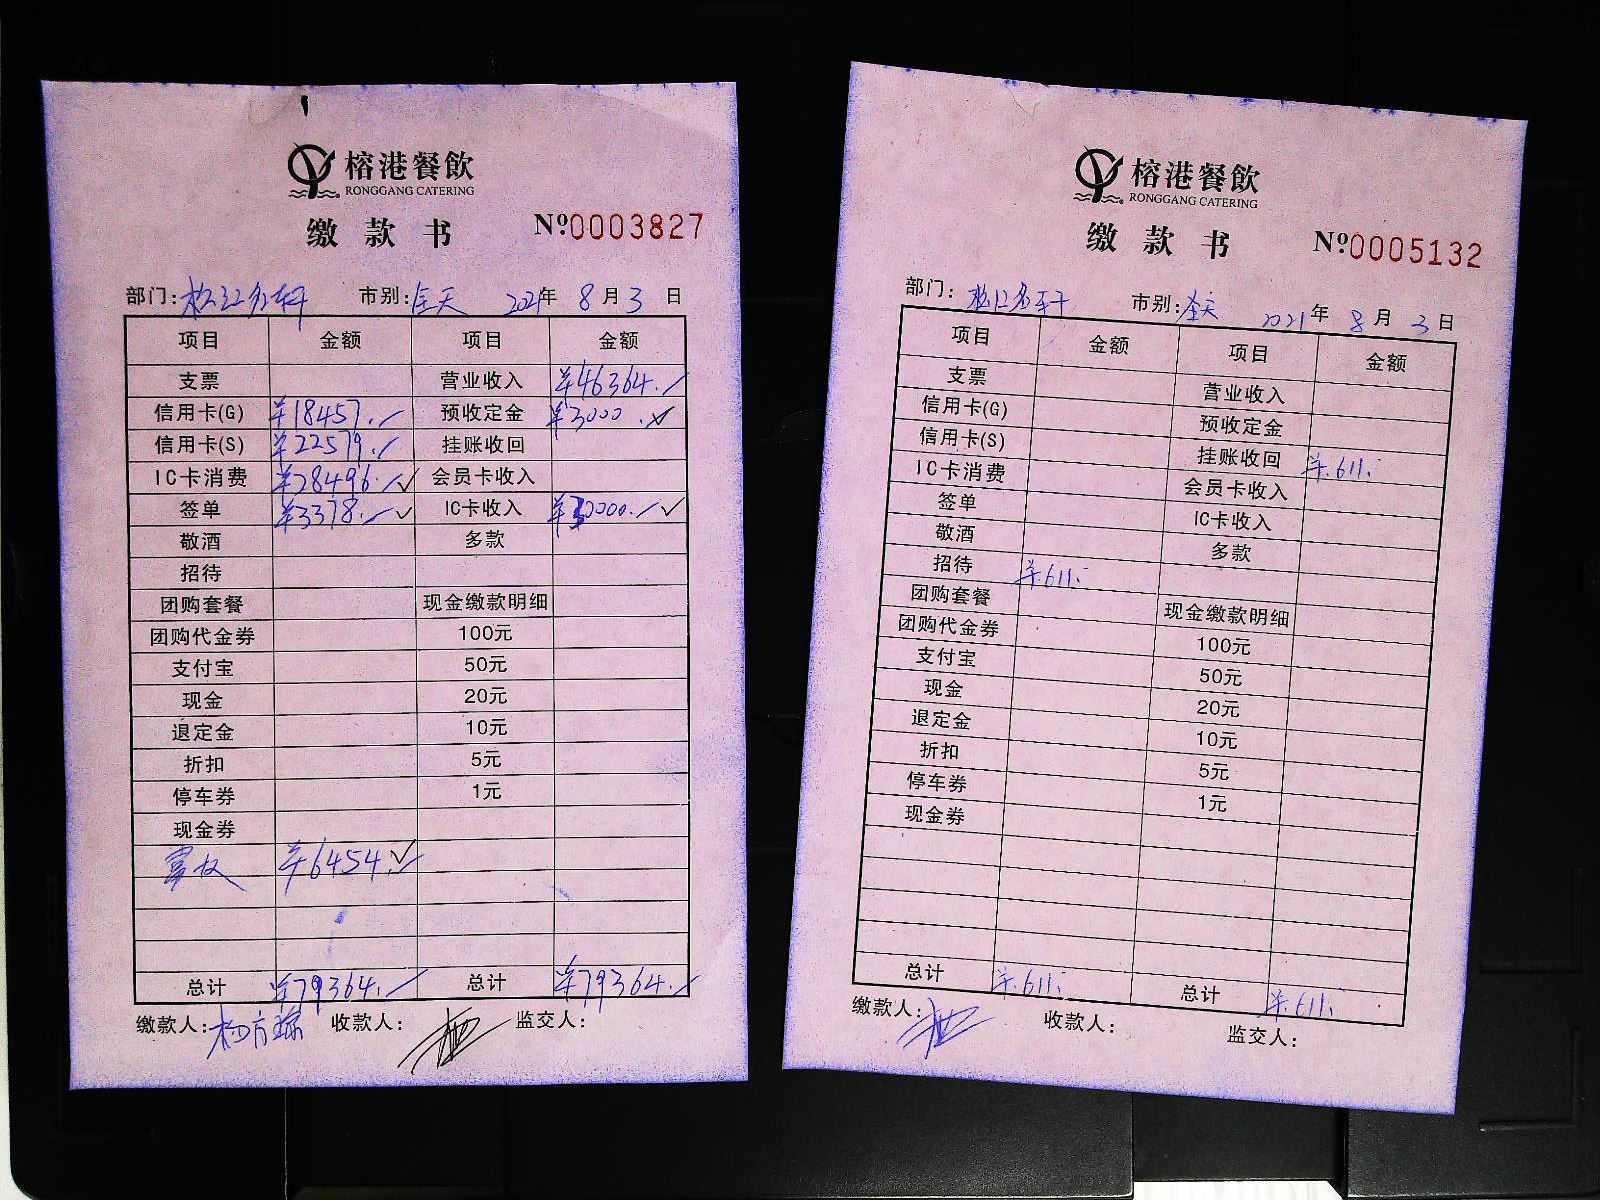 榕港餐飲
RONGGANG CATERING
缴款书 Nº0003827
部门:松江名轩 市别:全天 2021年 8月3日
项目 金额 项目 金额
支票 营业收入 ¥46364.
信用卡(G) ¥18457. 预收定金 ¥3000.
信用卡(S) ¥22579. 挂账收回
IC卡消费 ¥28496. 会员卡收入
签单 ¥3378. IC卡收入 ¥30000.
敬酒 多款
招待
团购套餐 现金缴款明细
团购代金券 100元
支付宝 50元
现金 20元
退定金 10元
折扣 5元
停车券 1元
现金券
¥6454.
总计 ¥79364. 总计 ¥79364.
缴款人: 收款人: 监交人:
榕港餐飲
RONGGANG CATERING
缴款书 Nº0005132
部门:松江名轩 市别:全天 2021年 8月3日
项目 金额 项目 金额
支票 营业收入
信用卡(G) 预收定金
信用卡(S) 挂账收回 ¥611.
IC卡消费 会员卡收入
签单 IC卡收入
敬酒 多款
招待 ¥611.
团购套餐 现金缴款明细
团购代金券 100元
支付宝 50元
现金 20元
退定金 10元
折扣 5元
停车券 1元
现金券
总计 ¥611. 总计 ¥611.
缴款人: 收款人: 监交人: